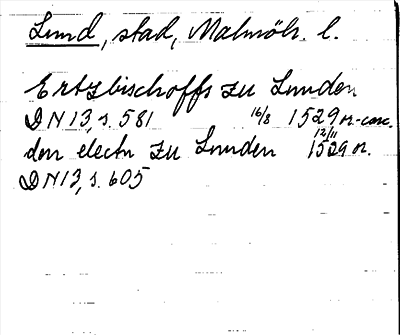 Lund, stad, Malmöh. l.
Ertzbischoffs zu Lunden
DN 13, s. 581 16/8 1529 or-conc.
den electn zu Lunden 12/11 1529 or.
DN 13, s. 605